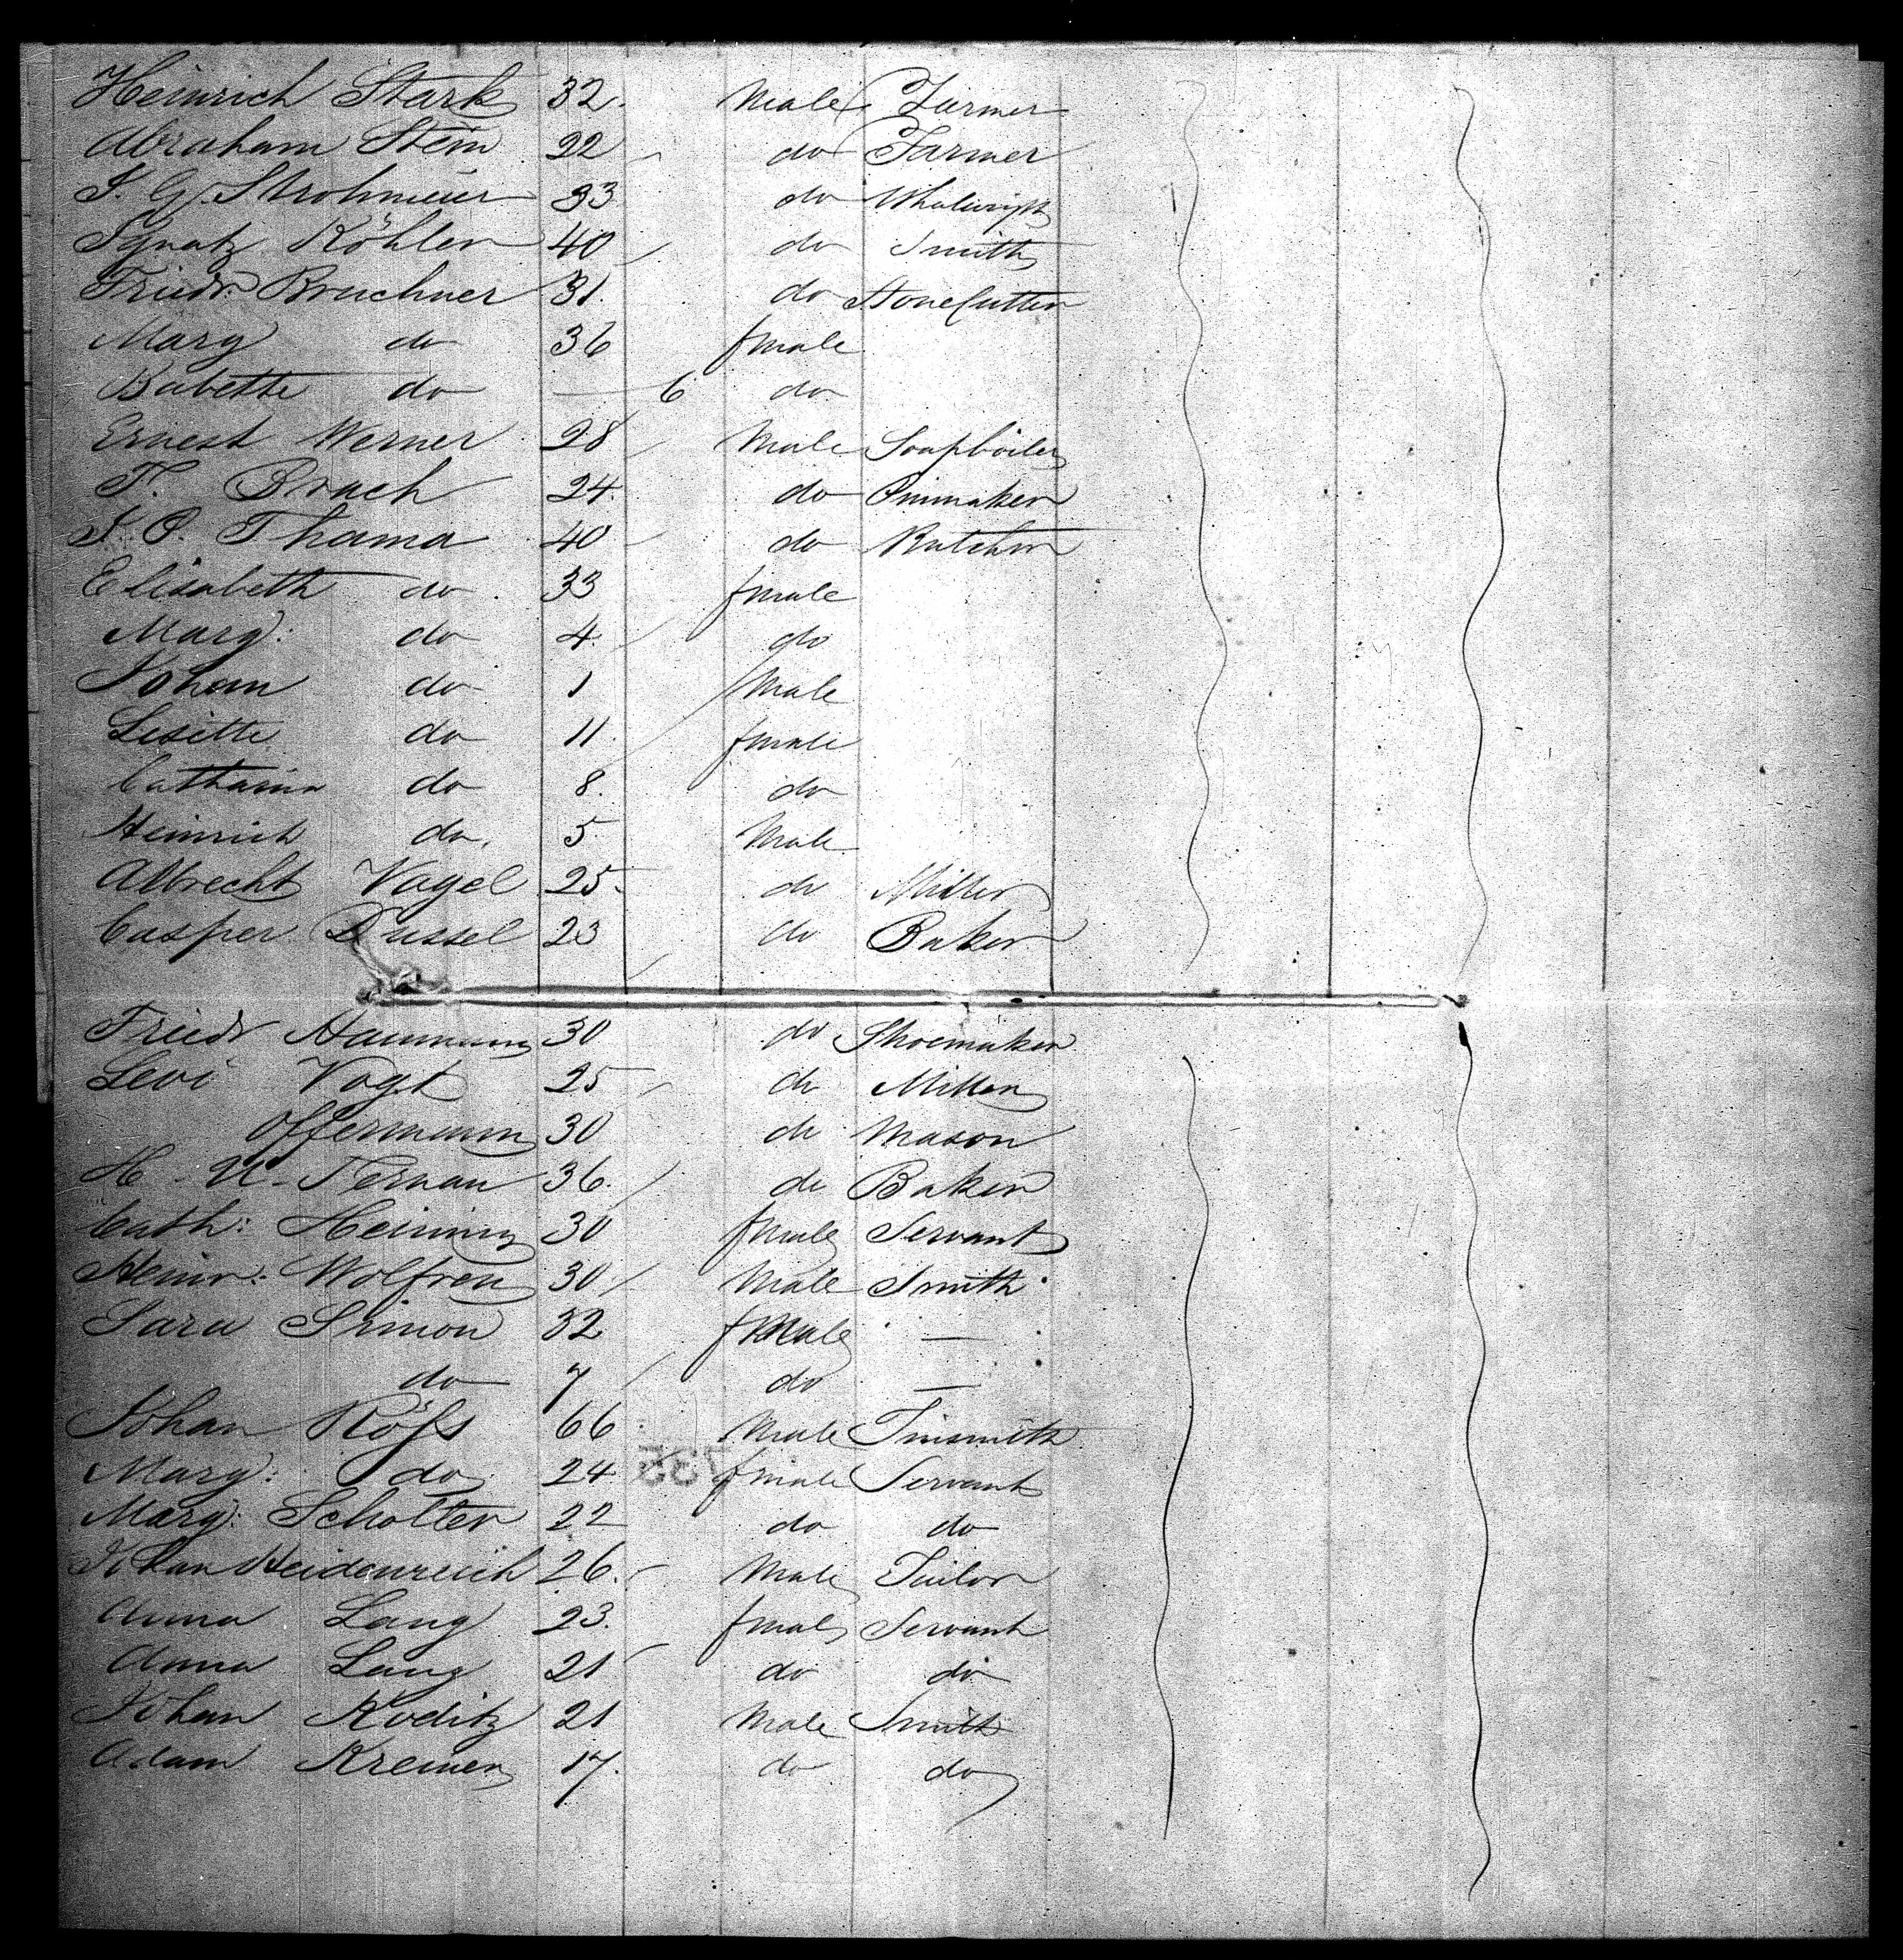 Heinrich Stark 32. Male Farmer
Abraham Stein 22 do Farmer
J. G. Strohmeier 33 do
Ignatz Köhler 40 do Smith
Friedr. Bruchner 31. do Stonecutter
Marg do 36 fmale
Babette do — 6 do
Ernest Werner 28 Male Soapboiler
T. Brach 24. do Pinmaker
J. P. Thama 40 do Butcher
Elisabeth do. 33 fmale
Marg: do 4. do
Johan do 1 Male
Lisette do 11. fmale
Catharin do 8. do
Heinrich do. 5 Male
Albrecht Vogel 25. do Miller
Casper Dussel 23 do Baker
Friedr 30 do Shoemaker
Levi Vogt 25 do Miller
Offermann 30 do Mason
H. 36. do Baker
Cath: 30 fmale Servant
Heinr: Wolfren 30 Male Smith
Sara Simon 32 fmale —
do 7 do —
Johan 66 Male Tinsmith
735
Marg: do 24 fmale Servant
Marg: Scholter 22 do do
Johan Heidenreich 26. Male Tailor
Anna Lang 23. fmale Servant
Anna Lang 21 do do
Johan Koditz 21 Male Smith
Adam Kremer 17. do do